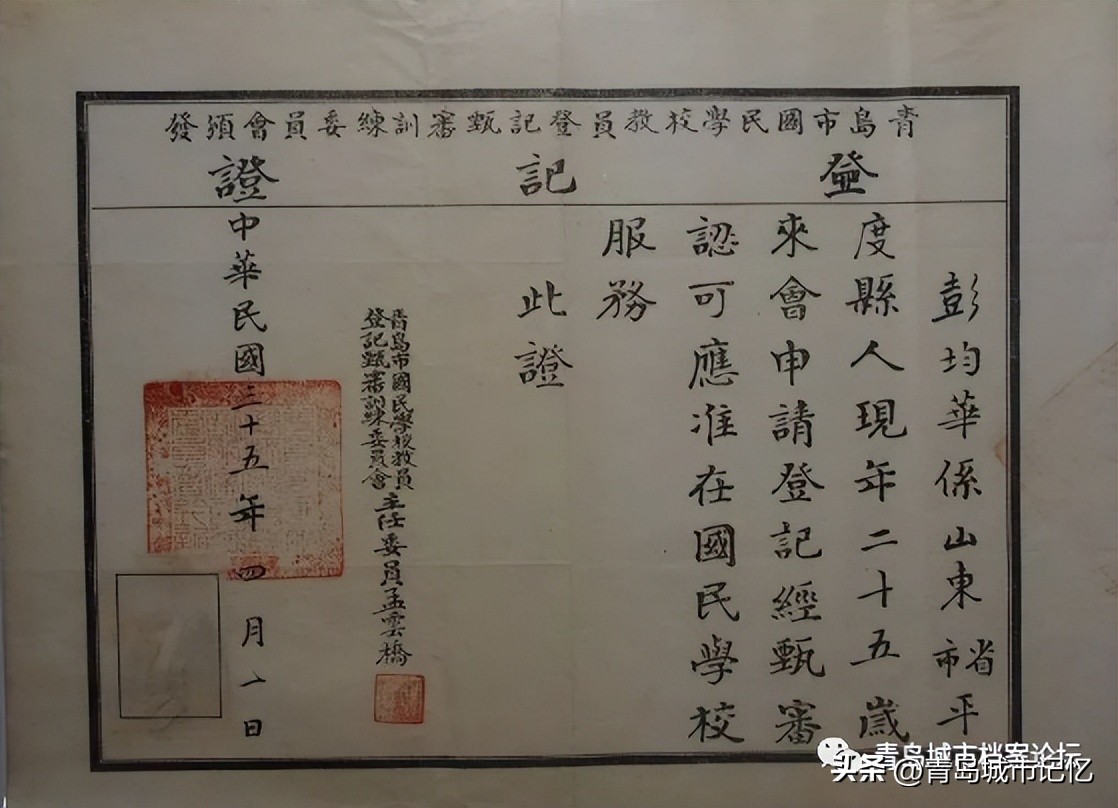 青島市國民學校教員登記甄審訓練委員會頒發
登記證
彭均華係山東省市平
度縣人現年二十五歲
來會申請登記經甄審
認可應准在國民學校
服務
此證
青島市國民學校教員
登記甄審訓練委員會
主任委員孟雲橋
中華民國三十五年四月 日
青岛城市档案论坛
头条@青岛城市记忆